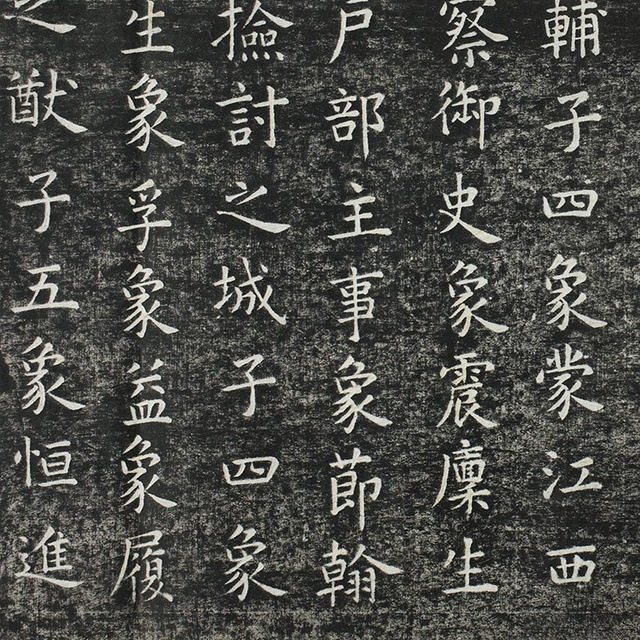 輔子四象蒙江西
察御史象震廩生
戶部主事象節翰
撿討之城子四象
生象孚象益象履
之猷子五象恒進